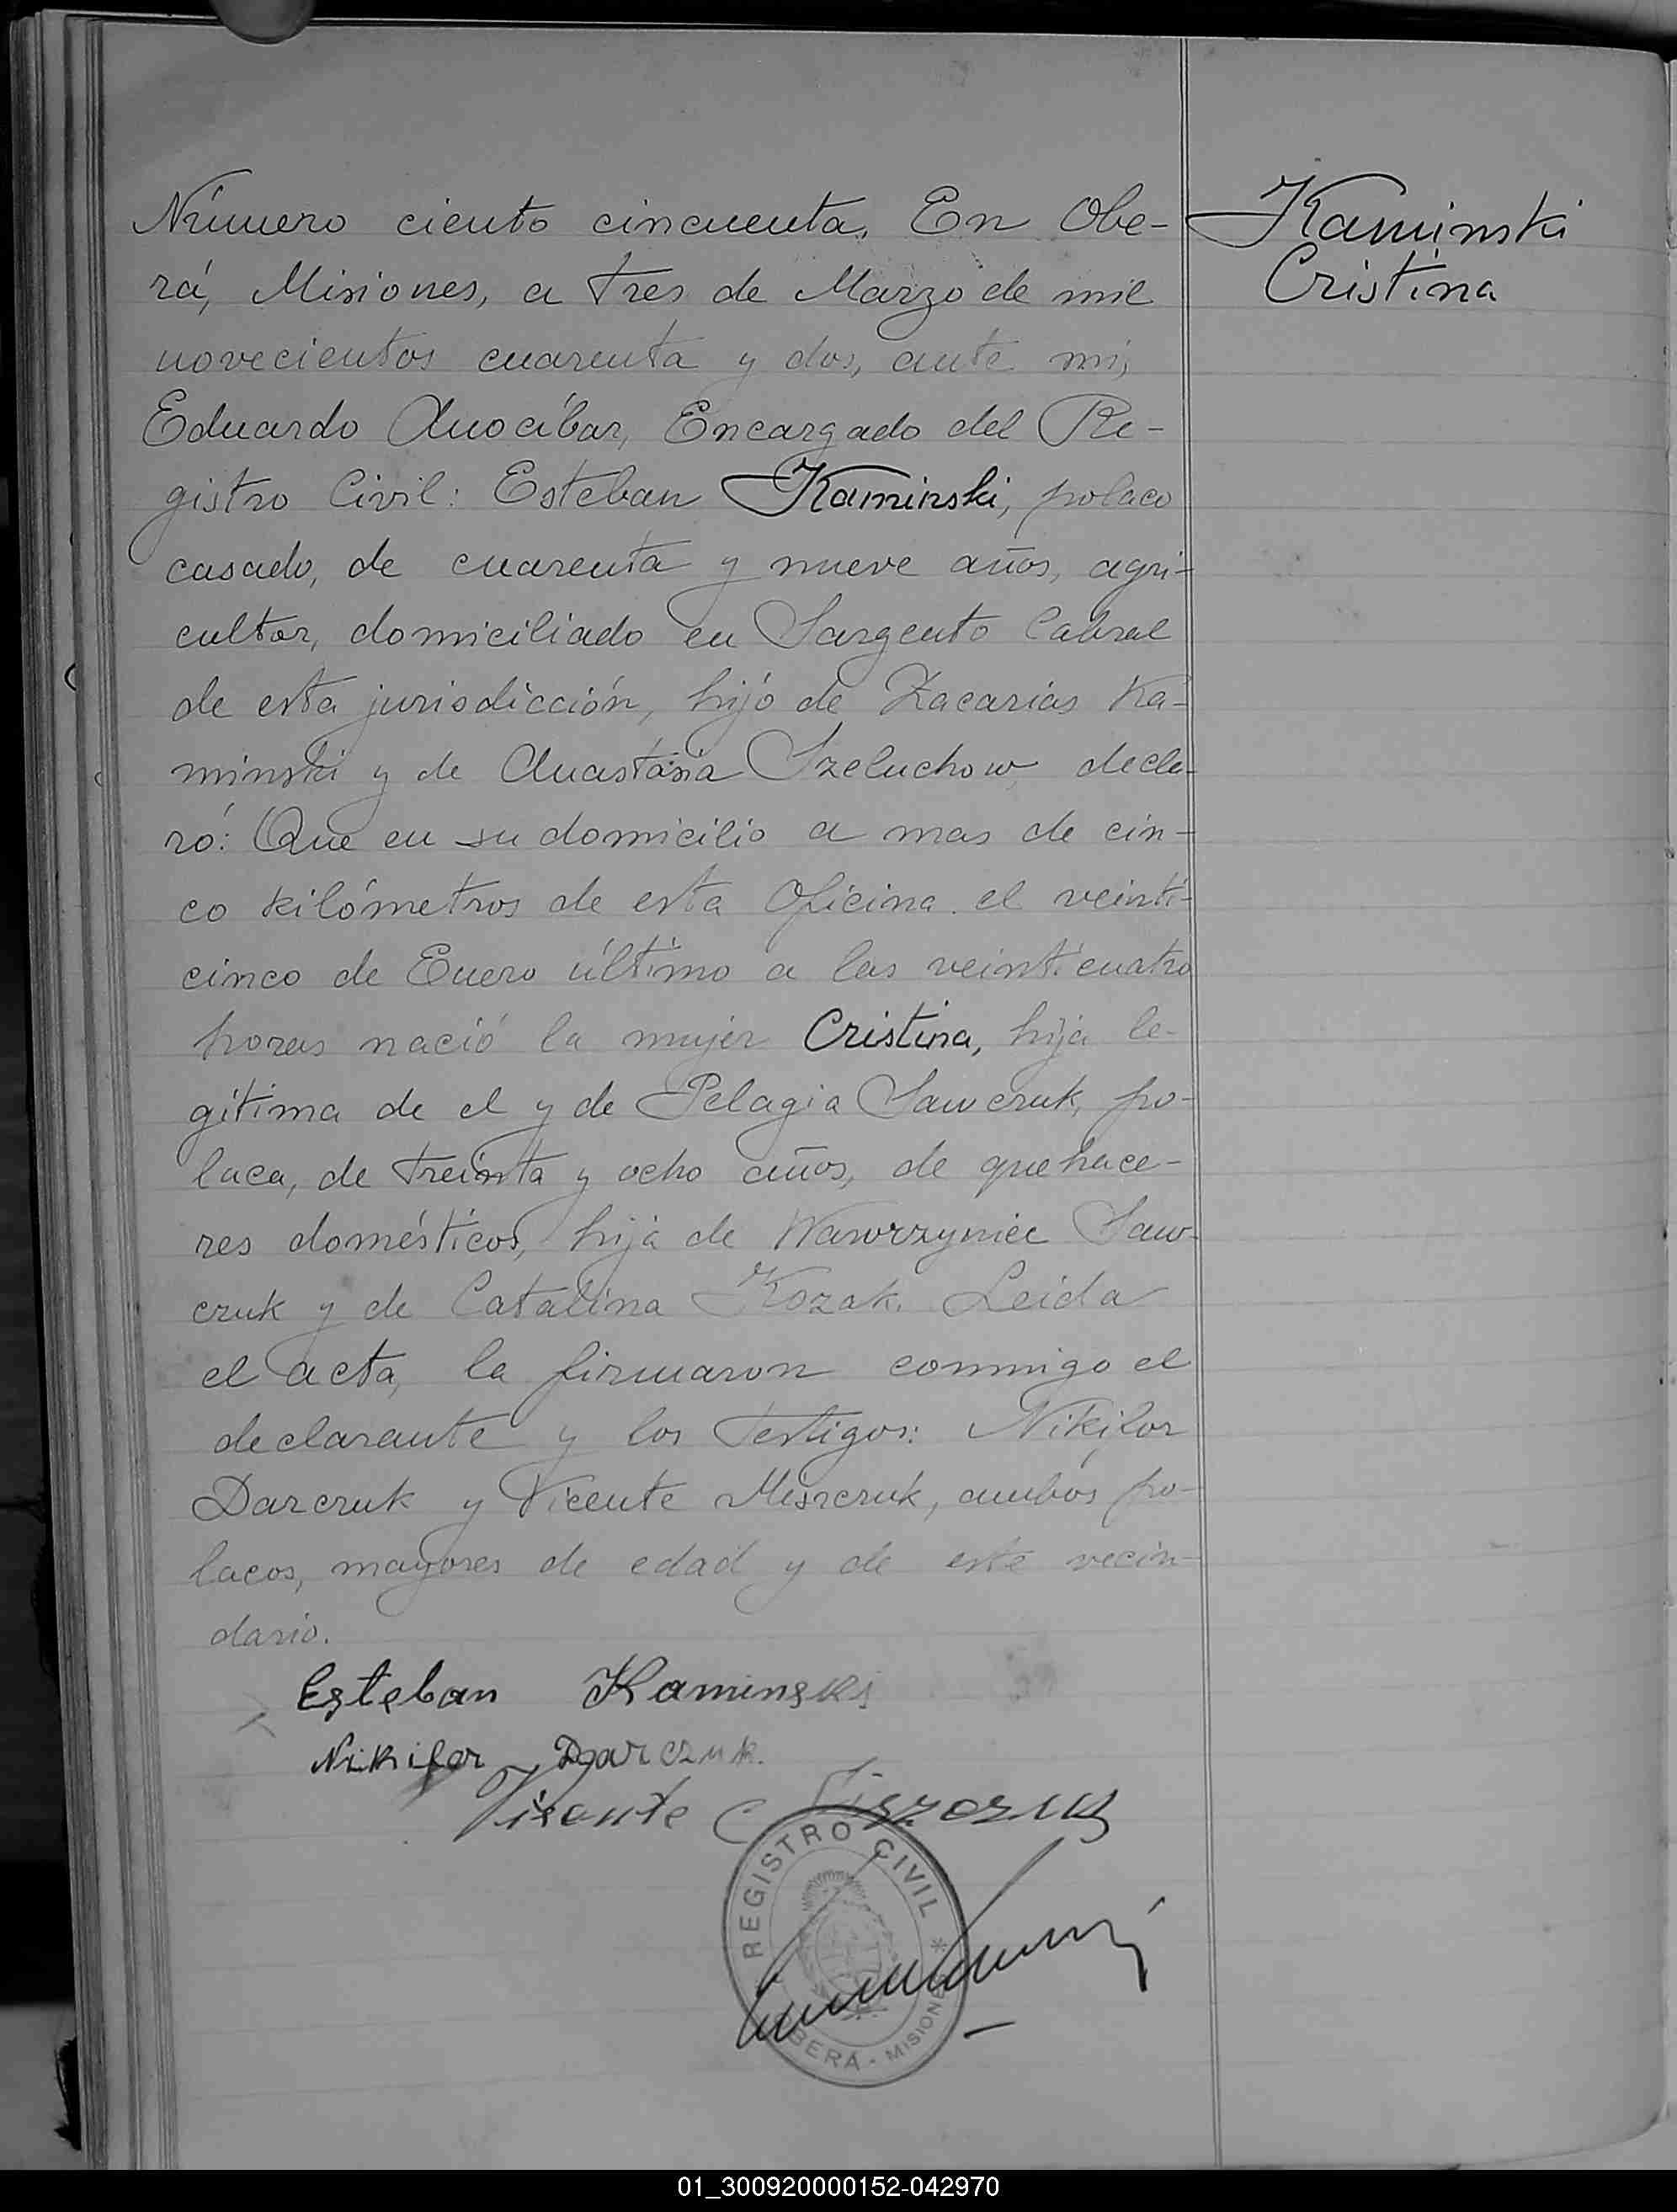 Número ciento cincuenta. En Obe-
rá, Misiones, a tres de Marzo de mil
novecientos cuarenta y dos, ante mi,
Eduardo Anocíbar, Encargado del Re-
gistro Civil: Esteban Kaminski, polaco
casado, de cuarenta y nueve años, agri-
cultor, domiciliado en Sargento Cabral
de esta jurisdicción, hijo de Zacarias Ka-
minski y de Anastasia Szeluchow, decla-
ró: Que en su domicilio a mas de cin-
co kilómetros de esta Oficina el veinti-
cinco de Enero último a las veinticuatro
horas nació la mujer Cristina, hija le-
gítima de el y de Pelagia Sawczuk, po-
laca, de treinta y ocho años, de quehace-
res domésticos, hija de Wawrzyniec Saw-
czuk y de Catalina Kozak. Leida
el acta, la firmaron conmigo el
declarante y los testigos: Nikifor
Darczuk y Vicente Miszczuk, ambos po-
lacos, mayores de edad y de este vecin-
dario.
Kaminski
Cristina
Esteban Kaminski
Nikifor Darczuk.
REGISTRO CIVIL
OBERÁ - MISIONES
01_300920000152-042970